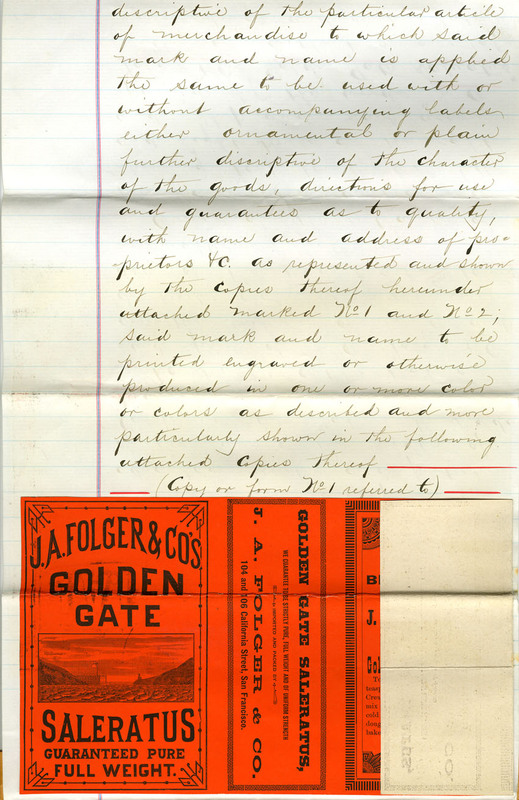 descriptive of the particular article
of merchandise to which said
mark and name is applied
the same to be used with or
without accompanying labels
either ornamental or plain
further discriptive of the character
of the goods, directions for use
and guarantees as to quality,
with name and address of pro-
prietors &C. as represented and shown
by the Copies thereof hereunder
attached marked No 1 and No 2;
said mark and name to be
printed engraved or otherwise
produced in one or more color
or colors as described and more
particularly shown in the following
attached Copies thereof
(Copy or form No 1 referred to)
J.A. FOLGER & CO'S
GOLDEN
GATE
SALERATUS
GUARANTEED PURE
FULL WEIGHT.
GOLDEN GATE SALERATUS,
WE GUARANTEE TO BE STRICTLY PURE, FULL WEIGHT AND OF UNIFORM STRENGTH
IMPORTED AND PACKED BY
J. A. FOLGER & CO.
104 and 106 California Street, San Francisco.
B
J.
Go
To
Crea
mix
cold
doug
bake